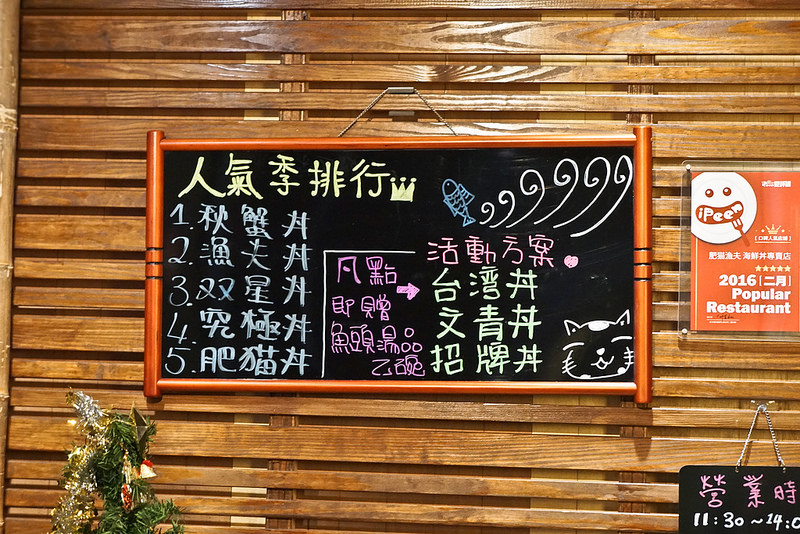 人氣季排行
1.秋蟹丼
2.漁夫丼
3.双星丼
4.究極丼
5.肥猫丼
凡點
即贈
魚頭湯
乙碗
活動方案
台湾丼
文青丼
招牌丼
iPeen
肥猫漁夫 海鮮丼專賣店
2016 [二月]
Popular
Restaurant
營業時
11:30~14:0